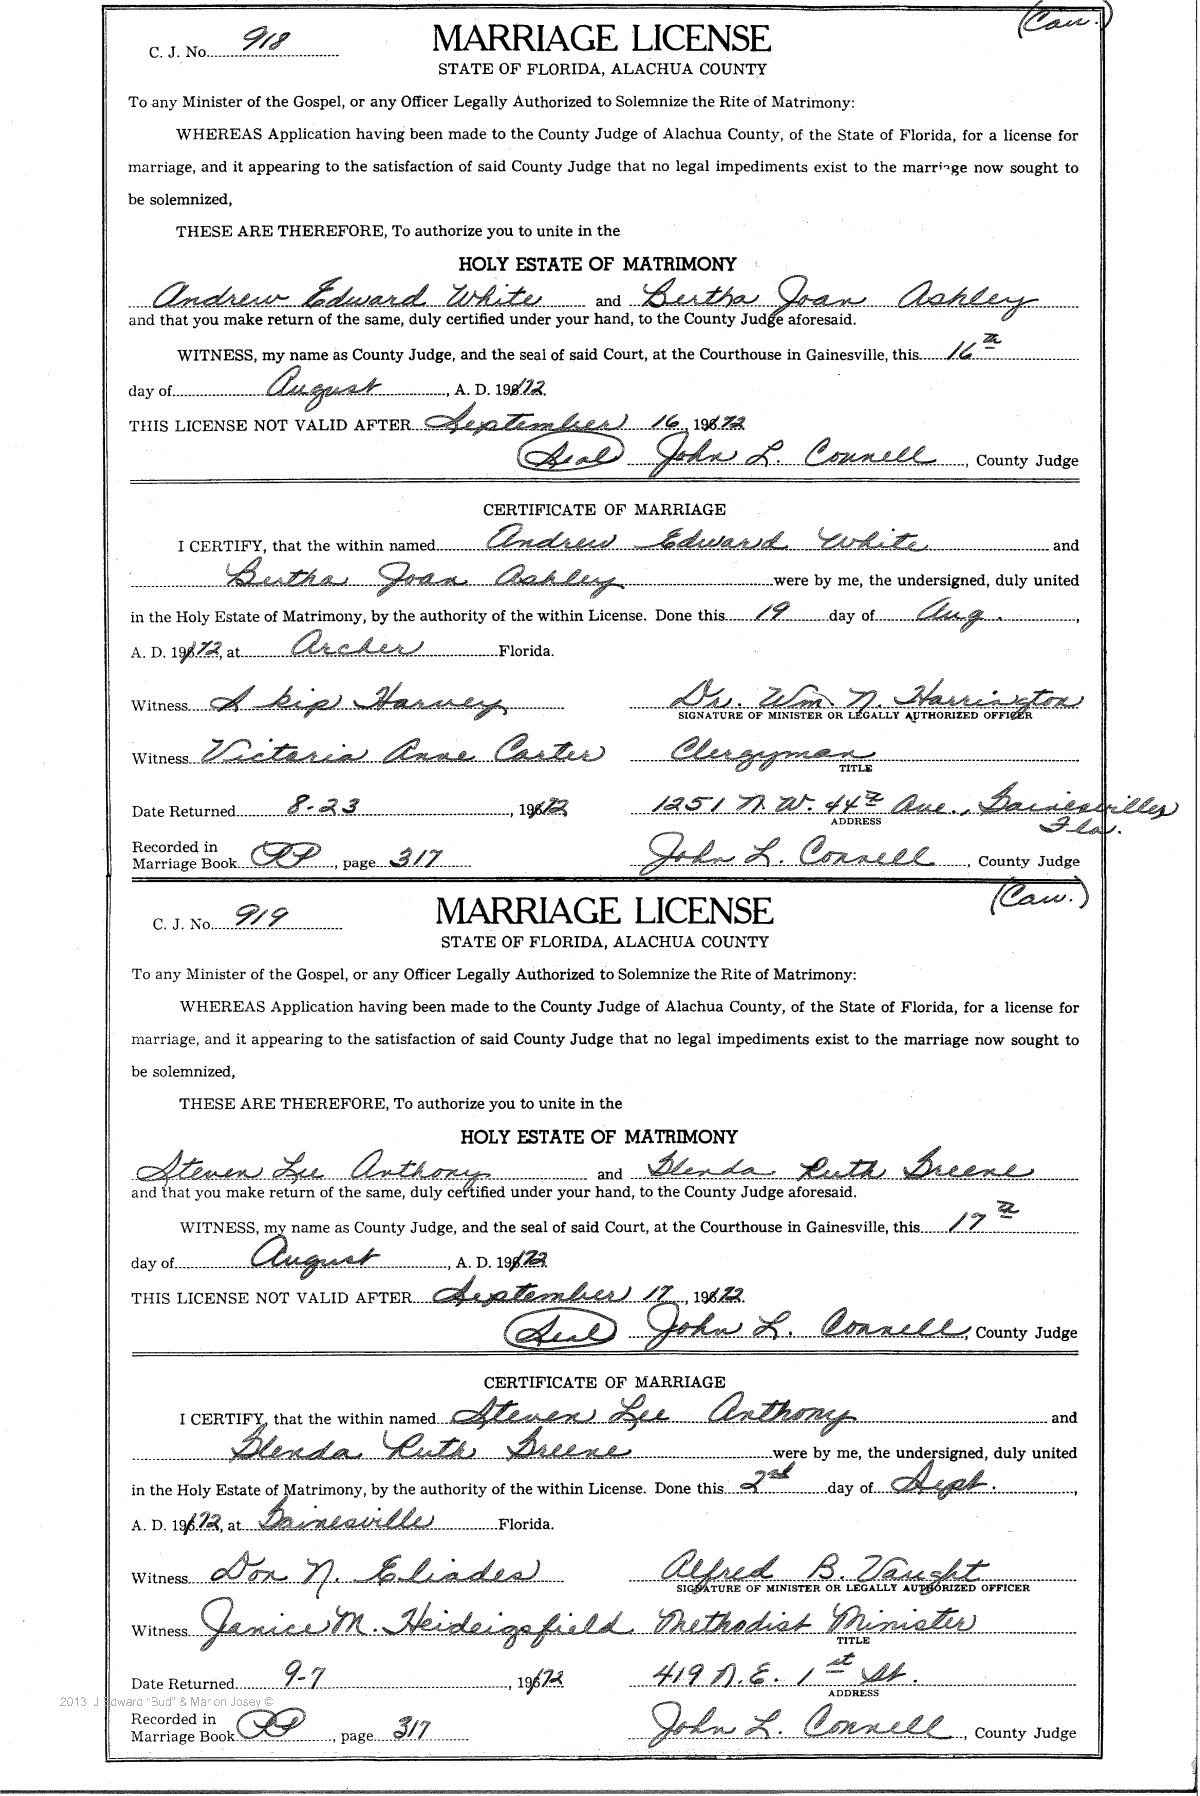 (Cau.)
C. J. No. 918
MARRIAGE LICENSE
STATE OF FLORIDA, ALACHUA COUNTY
To any Minister of the Gospel, or any Officer Legally Authorized to Solemnize the Rite of Matrimony:
WHEREAS Application having been made to the County Judge of Alachua County, of the State of Florida, for a license for
marriage, and it appearing to the satisfaction of said County Judge that no legal impediments exist to the marriage now sought to
be solemnized,
THESE ARE THEREFORE, To authorize you to unite in the
HOLY ESTATE OF MATRIMONY
Andrew Edward White and Bertha Joan Ashley
and that you make return of the same, duly certified under your hand, to the County Judge aforesaid.
WITNESS, my name as County Judge, and the seal of said Court, at the Courthouse in Gainesville, this 16th
day of August, A. D. 1972
THIS LICENSE NOT VALID AFTER September 16, 1972
(Seal) John L. Connell, County Judge
CERTIFICATE OF MARRIAGE
I CERTIFY, that the within named Andrew Edward White and
Bertha Joan Ashley were by me, the undersigned, duly united
in the Holy Estate of Matrimony, by the authority of the within License. Done this 19 day of Aug.,
A. D. 1972, at Archer Florida.
Witness Skip Harvey Dr. Wm. N. Harrington
SIGNATURE OF MINISTER OR LEGALLY AUTHORIZED OFFICER
Witness Victoria Anne Carter Clergyman
TITLE
Date Returned 8-23, 1972 1251 N. W. 44th Ave., Gainesville,
Fla.
ADDRESS
Recorded in
Marriage Book PP, page 317 John L. Connell, County Judge
(Cau.)
C. J. No. 919
MARRIAGE LICENSE
STATE OF FLORIDA, ALACHUA COUNTY
To any Minister of the Gospel, or any Officer Legally Authorized to Solemnize the Rite of Matrimony:
WHEREAS Application having been made to the County Judge of Alachua County, of the State of Florida, for a license for
marriage, and it appearing to the satisfaction of said County Judge that no legal impediments exist to the marriage now sought to
be solemnized,
THESE ARE THEREFORE, To authorize you to unite in the
HOLY ESTATE OF MATRIMONY
Steven Lee Anthony and Glenda Ruth Greene
and that you make return of the same, duly certified under your hand, to the County Judge aforesaid.
WITNESS, my name as County Judge, and the seal of said Court, at the Courthouse in Gainesville, this 17th
day of August, A. D. 1972
THIS LICENSE NOT VALID AFTER September 17, 1972
(Seal) John L. Connell, County Judge
CERTIFICATE OF MARRIAGE
I CERTIFY, that the within named Steven Lee Anthony and
Glenda Ruth Greene were by me, the undersigned, duly united
in the Holy Estate of Matrimony, by the authority of the within License. Done this 2nd day of Sept.,
A. D. 1972, at Gainesville Florida.
Witness Don N. Eliades Alfred B. Vaught
SIGNATURE OF MINISTER OR LEGALLY AUTHORIZED OFFICER
Witness Janice M. Heideigsfield Methodist Minister
TITLE
Date Returned 9-7, 1972 419 N. E. 1st St.
ADDRESS
2013 J Edward "Bud" & Marion Josey ©
Recorded in
Marriage Book PP, page 317 John L. Connell, County Judge